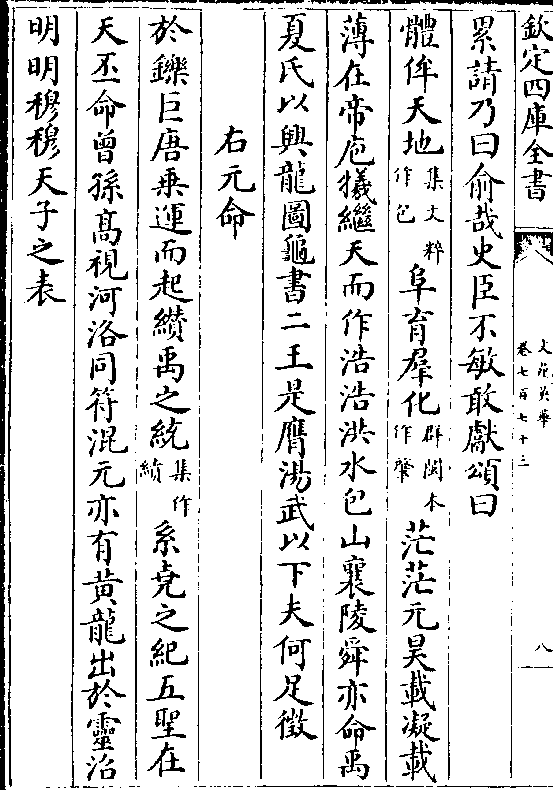 欽定四庫全書
文苑英華
卷七百七十三
八
累請乃曰俞哉史臣不敏敢獻頌曰
體侔天地集文粹作包阜育羣化群閩本作肇茫茫元昊載凝載
薄在帝庖犧繼天而作浩浩洪水包山襄陵舜亦命禹
夏氏以興龍圖龜書二王是膺湯武以下夫何足徴
右元命
於鑠巨唐乗運而起纘禹之統集作績系堯之紀五聖在
天丕命曽孫髙視河洛同符混元亦有黄龍出於靈沼
明明穆穆天子之表